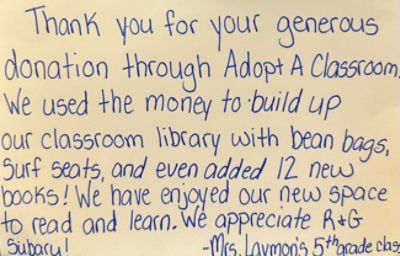 Thank you for your generous
donation through Adopt A Classroom.
We used the money to build up
our classroom library with bean bags,
Surf seats, and even added 12 new
books! We have enjoyed our new space
to read and learn. We appreciate R&G
Subaru! -Mrs. Laymon's 5th grade class